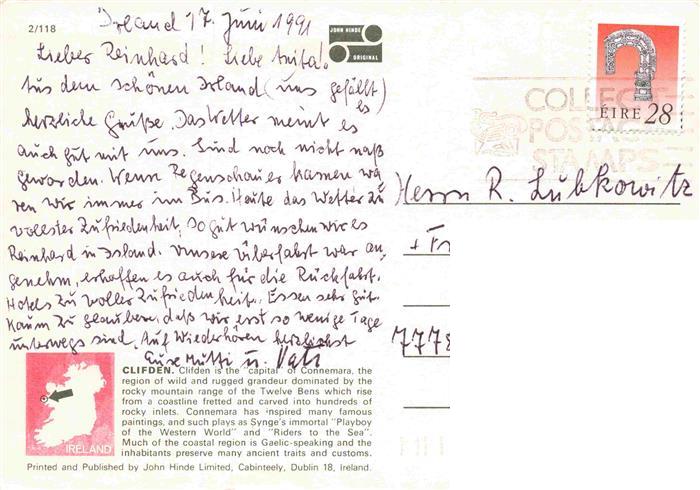 2/118
Irland 17. Juni 1991
Lieber Reinhard! Liebe Anita!
Aus dem schönen Irland (uns gefällt es)
herzliche Grüße. Das Wetter meint es
auch gut mit uns. Sind noch nicht naß
geworden. Wenn Regenschauer kamen wa
ren wir immer im Bus. Heute das Wetter zu
vollster Zufriedenheit, so gut wünschen wir es
Reinhard in Irland. Unsere Überfahrt war an,
genehm, erhoffen es auch für die Rückfahrt.
Hotels zu voller Zufriedenheit. Essen sehr gut.
Kaum zu glauben, daß wir erst so wenige Tage
unterwegs sind. Auf Wiederhören herzlichst
Eure Mutti u. Vati
JOHN HINDE
ORIGINAL
COLLECT
POSTAGE
STAMPS
ÉIRE 28
Herrn R. Lubkowitz
+ Fr
777
IRELAND
CLIFDEN. Clifden is the "capital" of Connemara, the
region of wild and rugged grandeur dominated by the
rocky mountain range of the Twelve Bens which rise
from a coastline fretted and carved into hundreds of
rocky inlets. Connemara has inspired many famous
paintings, and such plays as Synge's immortal "Playboy
of the Western World" and "Riders to the Sea".
Much of the coastal region is Gaelic-speaking and the
inhabitants preserve many ancient traits and customs.
Printed and Published by John Hinde Limited, Cabinteely, Dublin 18, Ireland.